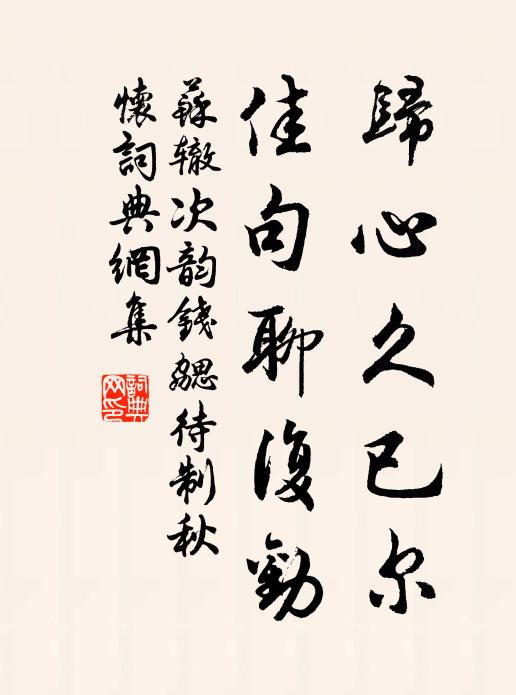 歸心久已尔
佳句聊復勸
蘇轍次韵錢勰待制秋
懷詞典網集
詞典網印